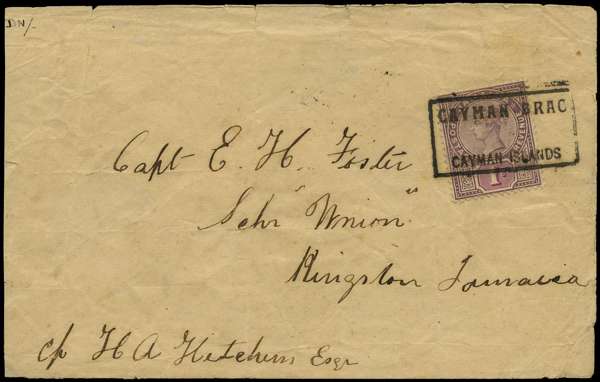 CAYMAN BRAC
CAYMAN ISLANDS
Capt E. H. Foster
Schr "Union"
Kingston Jamaica
c/o H A Hutchins Esqr